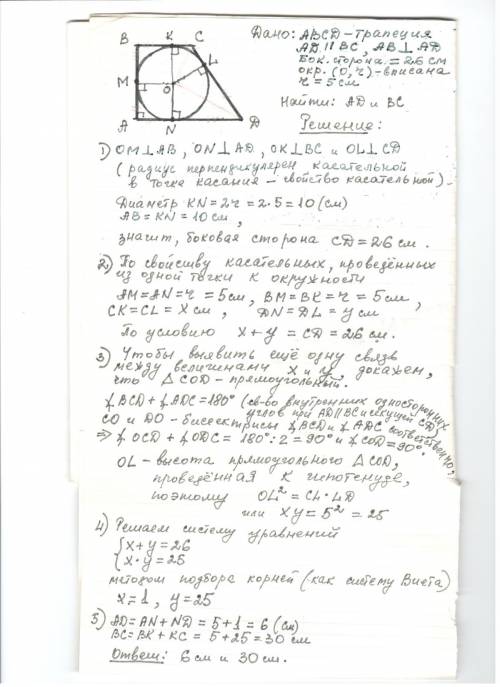 B K C
L
M O
A N D
Дано: ABCD - трапеция
AD ∥ BC, AB ⊥ AD
Бок. сторона = 26 см
окр. (O, r) - вписана
r = 5 см
Найти: AD и BC
Решение:
1) OM ⊥ AB, ON ⊥ AD, OK ⊥ BC и OL ⊥ CD
(радиус перпендикулярен касательной
в точке касания - свойство касательной).
Диаметр KN = 2r = 2·5 = 10 (см)
AB = KN = 10 см,
значит, боковая сторона CD = 26 см.
2) По свойству касательных, проведённых
из одной точки к окружности
AM = AN = r = 5 см, BM = BK = r = 5 см,
CK = CL = x см, DN = DL = y см
По условию x + y = CD = 26 см.
3) Чтобы выявить ещё одну связь
между величинами x и y, докажем,
что △COD - прямоугольный.
∡BCD + ∡ADC = 180° (св-во внутренних односторонних
углов при AD ∥ BC и секущей CD)
CO и DO - биссектрисы ∡BCD и ∡ADC соответственно
⇒ ∡OCD + ∡ODC = 180° : 2 = 90° и ∡COD = 90°.
OL - высота прямоугольного △COD,
проведённая к гипотенузе,
поэтому OL² = CL · LD
или xy = 5² = 25
4) Решаем систему уравнений
{ x + y = 26
x · y = 25
методом подбора корней (как систему Виета)
x = 1, y = 25
5) AD = AN + ND = 5 + 1 = 6 (см)
BC = BK + KC = 5 + 25 = 30 см
Ответ: 6 см и 30 см.